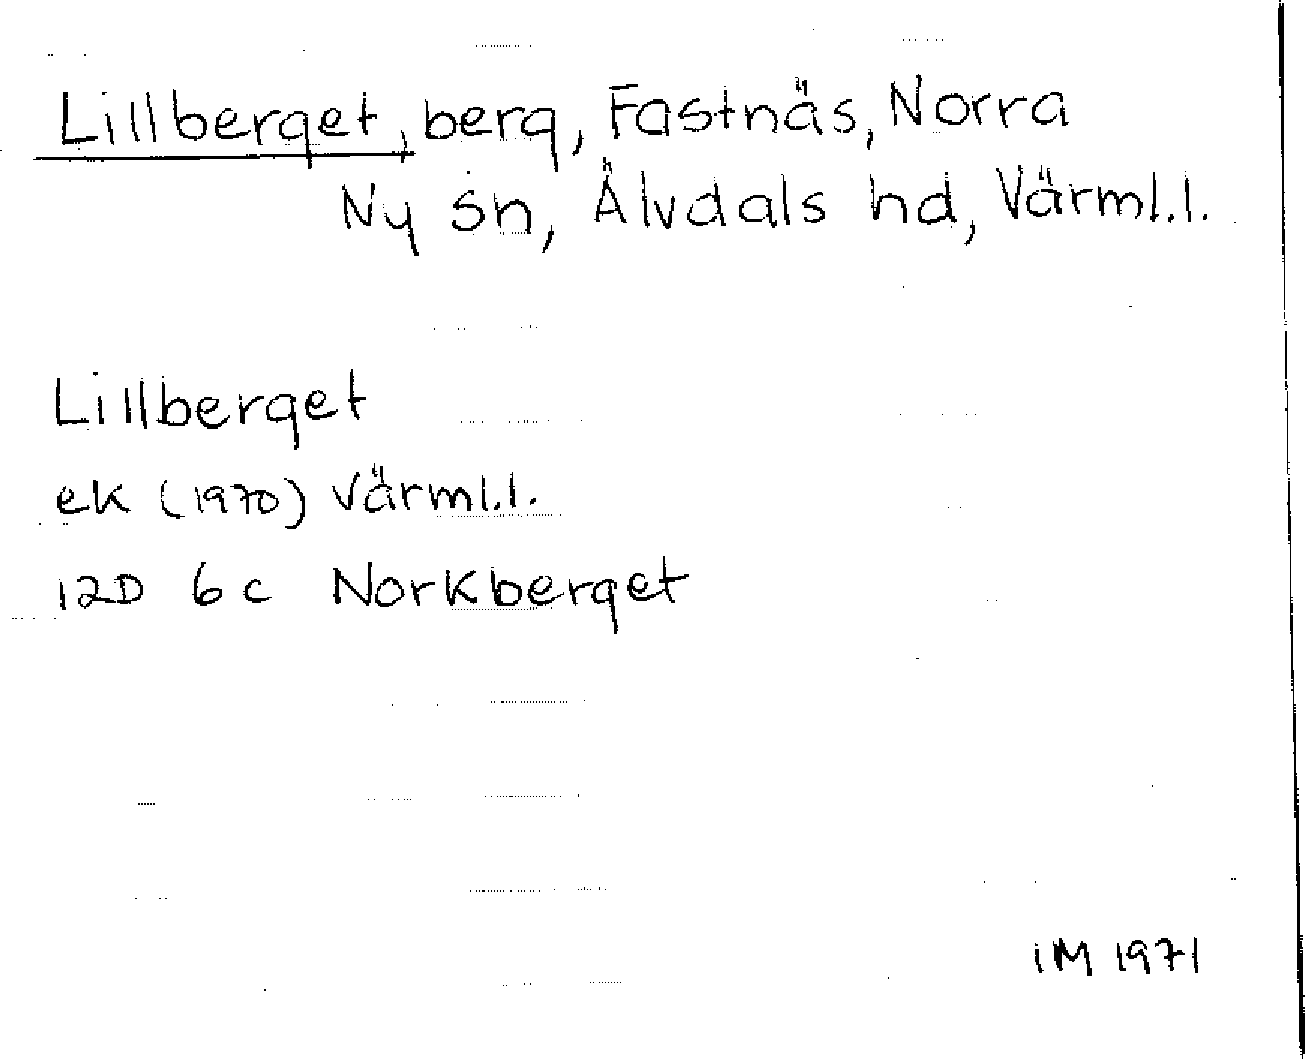 Lillberget, berg, Fastnäs, Norra
Ny sn, Älvdals hd, Värml.l.
Lillberget
ek (1970) Värml.l.
12D 6c Norkberget
IM 1971